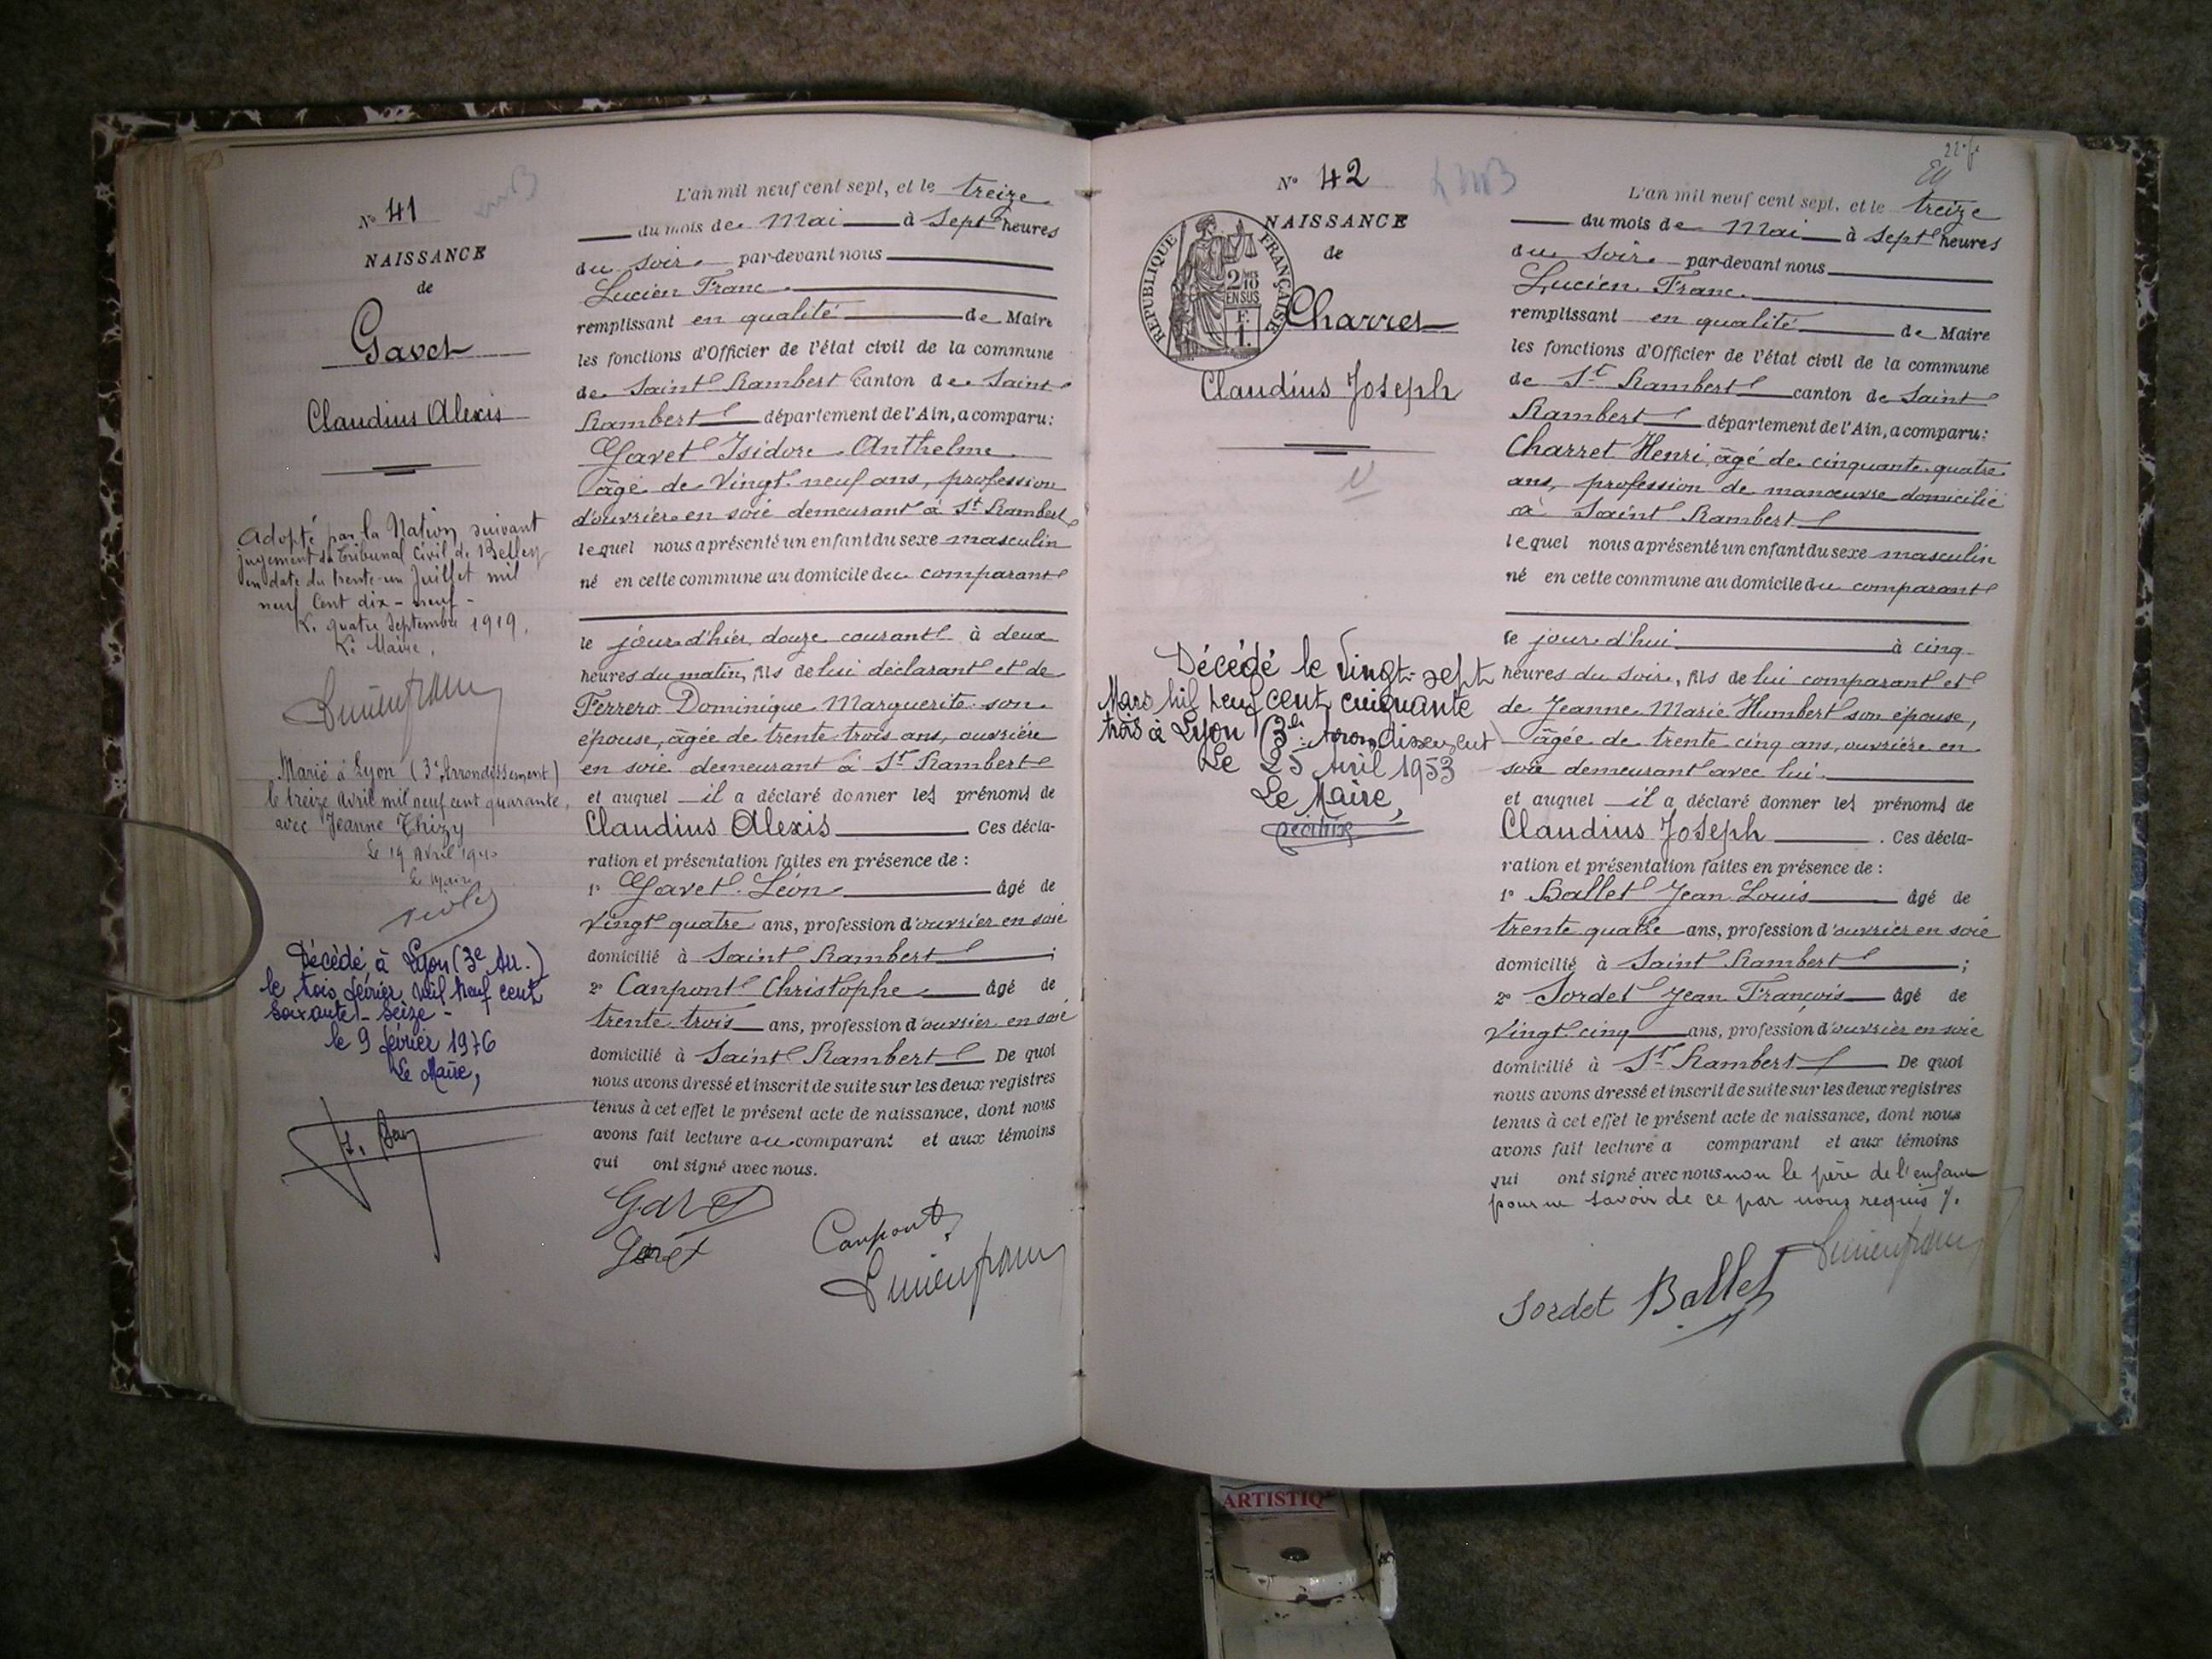 N° 41
NAISSANCE
de
Gavet
Claudius Alexis
Adopté par la Nation suivant
jugement du Tribunal Civil de Belley
en date du trente-un Juillet mil
neuf Cent dix-neuf-
Le quatre Septembre 1919,
Le Maire,
Marié à Lyon (3e Arrondissement)
le treize avril mil neuf cent quarante,
avec Jeanne Thizy
Le 19 Avril 1940
Le Maire
Décédé à Lyon (3e Arr.)
le trois février mil neuf cent
soixante-seize-
le 9 février 1976
Le Maire,
L'an mil neuf cent sept, et le treize
du mois de Mai à Sept heures
du soir par-devant nous
Lucien Franc
remplissant en qualité de Maire
les fonctions d'Officier de l'état civil de la commune
de Saint Rambert Canton de Saint
Rambert département de l'Ain, a comparu:
Gavet Isidore Anthelme
âgé de Vingt neuf ans, profession
d'ouvrier en soie demeurant à St Rambert
lequel nous a présenté un enfant du sexe masculin
né en cette commune au domicile du comparant
le jour d'hier douze courant à deux
heures du matin, fils de lui déclarant et de
Ferrero Dominique Marguerite son
épouse, âgée de trente trois ans, ouvrière
en soie demeurant à St Rambert
et auquel il a déclaré donner les prénoms de
Claudius Alexis Ces décla-
ration et présentation faites en présence de :
1° Gavet Léon âgé de
Vingt quatre ans, profession d'ouvrier en soie
domicilié à Saint Rambert ;
2° Canpont Christophe âgé de
trente trois ans, profession d'ouvrier en soie
domicilié à Saint Rambert De quoi
nous avons dressé et inscrit de suite sur les deux registres
tenus à cet effet le présent acte de naissance, dont nous
avons fait lecture au comparant et aux témoins
qui ont signé avec nous.
Gavet
Canpont
N° 42
NAISSANCE
de
RÉPUBLIQUE FRANÇAISE
2/10
EN SUS
F.
1.
Charret
Claudius Joseph
Décédé le Vingt-sept
Mars mil neuf cent cinquante
trois à Lyon (3e Arrondissement)
Le 25 Avril 1953
Le Maire,
L'an mil neuf cent sept, et le treize
du mois de Mai à sept heures
du soir par-devant nous
Lucien Franc
remplissant en qualité de Maire
les fonctions d'Officier de l'état civil de la commune
de St Rambert canton de Saint
Rambert département de l'Ain, a comparu:
Charret Henri, âgé de cinquante quatre
ans, profession de manœuvre domicilié
à Saint Rambert
lequel nous a présenté un enfant du sexe masculin
né en cette commune au domicile du comparant
le jour d'hui à cinq
heures du soir, fils de lui comparant et
de Jeanne Marie Humbert son épouse,
âgée de trente cinq ans, ouvrière en
soie demeurant avec lui.
et auquel il a déclaré donner les prénoms de
Claudius Joseph . Ces décla-
ration et présentation faites en présence de :
1° Ballet Jean Louis âgé de
trente quatre ans, profession d'ouvrier en soie
domicilié à Saint Rambert ;
2° Sordet Jean François âgé de
Vingt cinq ans, profession d'ouvrier en soie
domicilié à St Rambert De quoi
nous avons dressé et inscrit de suite sur les deux registres
tenus à cet effet le présent acte de naissance, dont nous
avons fait lecture a comparant et aux témoins
qui ont signé avec nous non le père de l'enfant
pour ne savoir de ce par nous requis /.
Sordet Ballet
ARTISTIQ